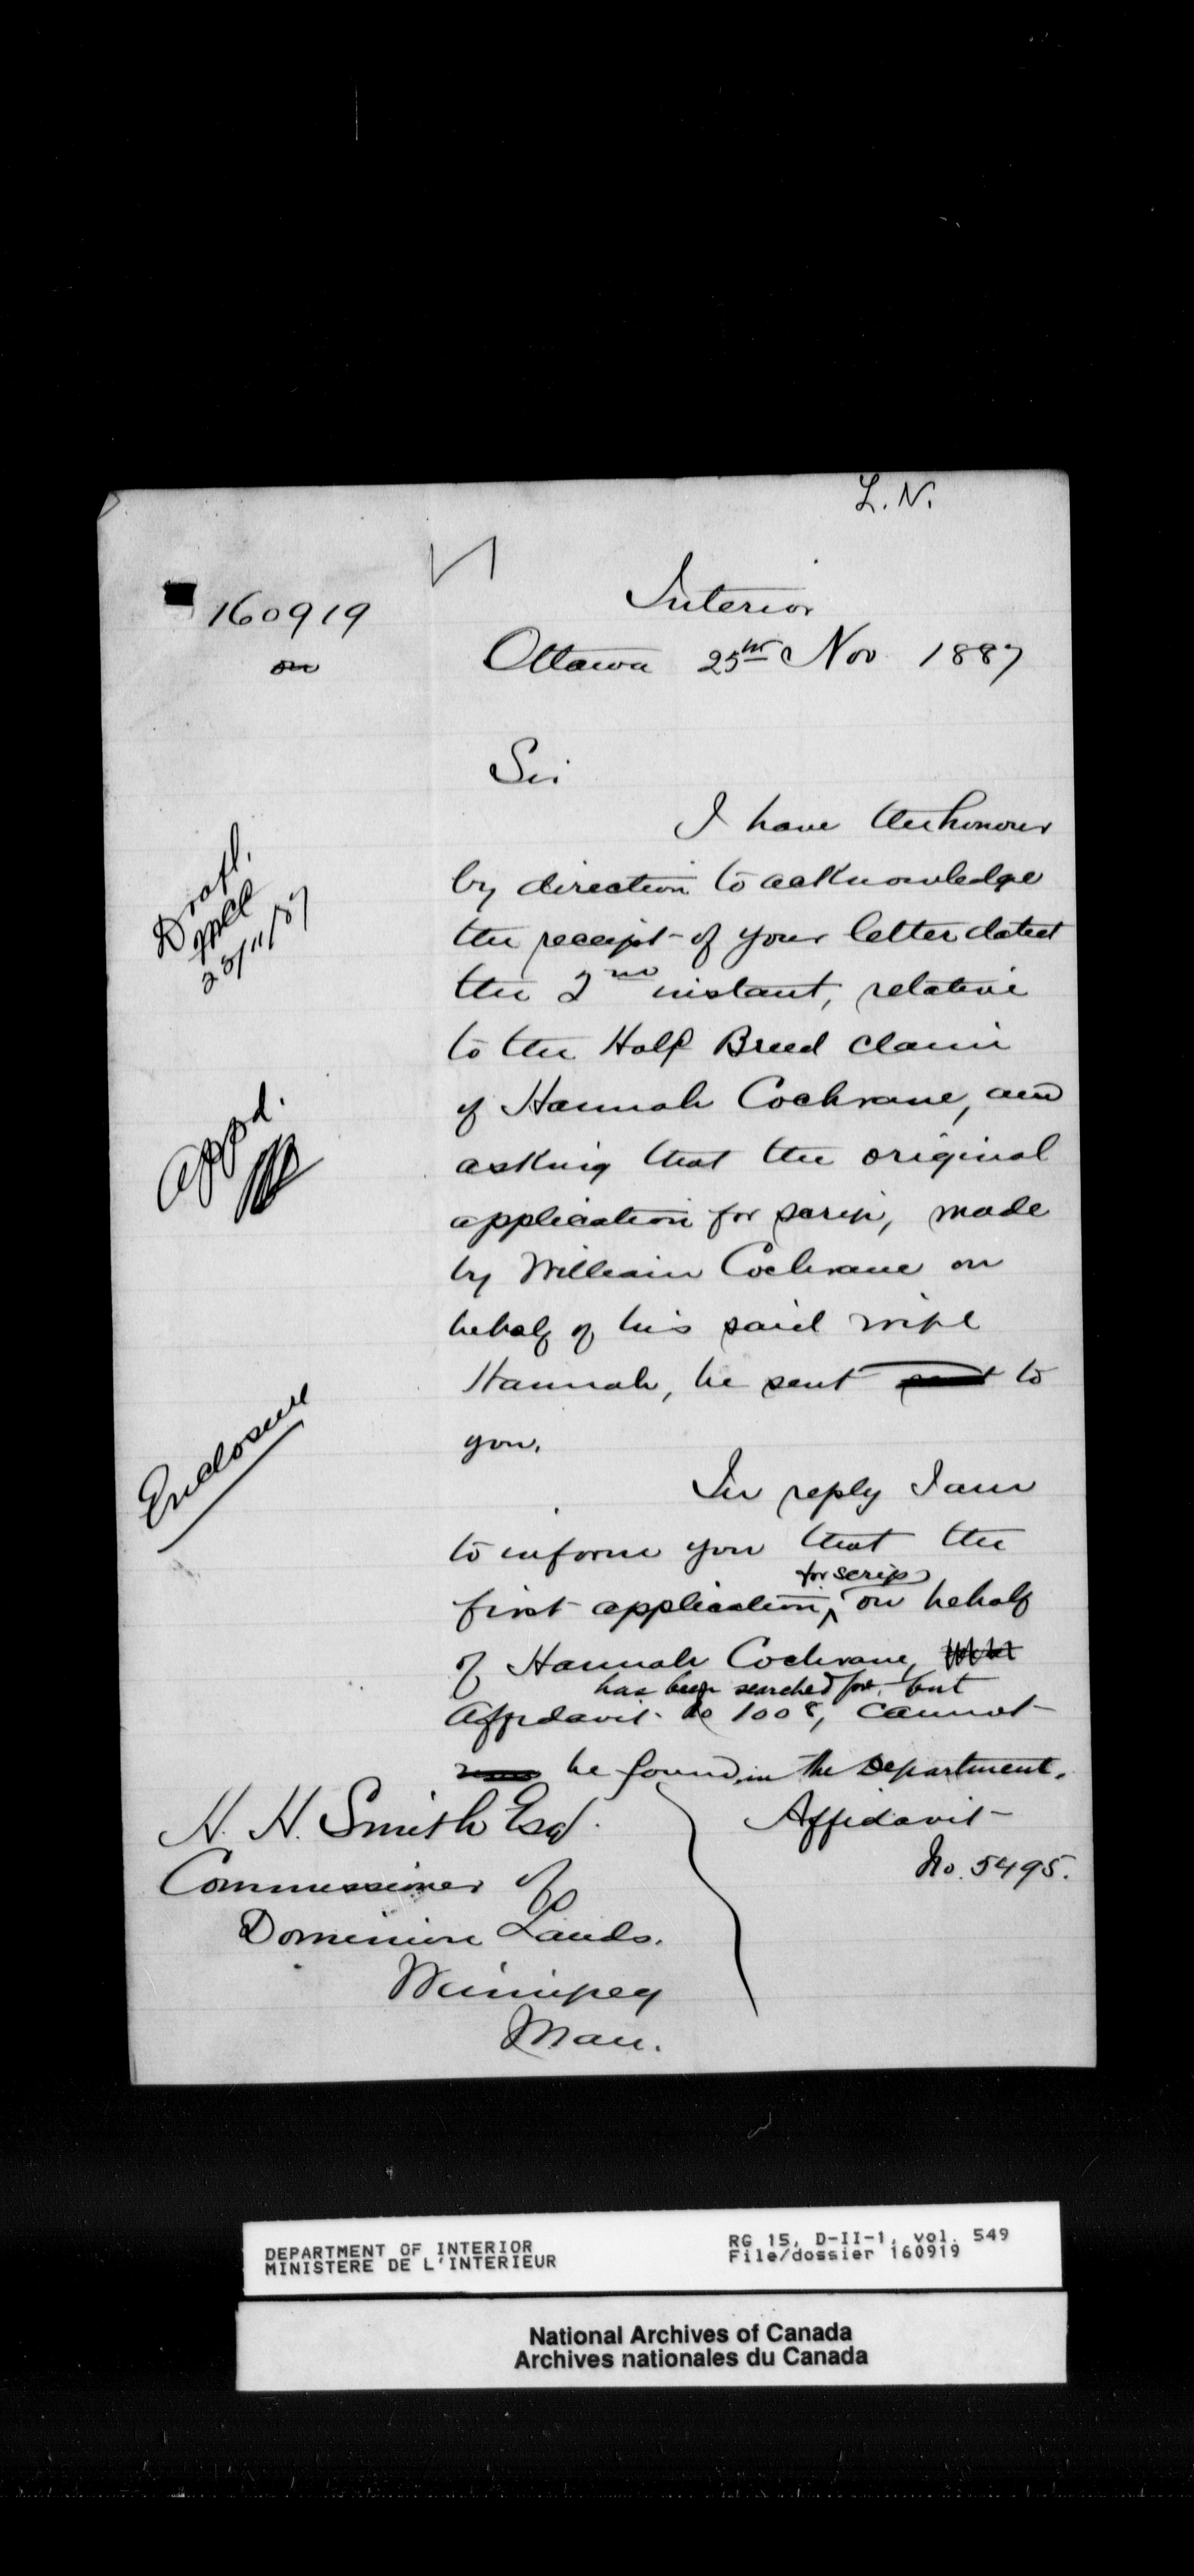 L. N.
160919
on
Interior
Ottawa 25th Nov 1887
Sir
I have the honour
by direction to acknowledge
the receipt of your letter dated
the 2nd instant, relative
to the Half Breed claim
of Hannah Cochrane, and
asking that the original
application for scrip, made
by William Cochrane on
behalf of his said wife
Hannah, be sent to
you.
In reply I am
to inform you that the
for scrip
first application, on behalf
of Hannah Cochrane,
has been searched for, but
Affidavit No 1008, cannot
be found in the Department.
Affidavit
No. 5495.
Draft.
25/11/87
Appd.
Enclosure
H. H. Smith Esq.
Commissioner of
Dominion Lands.
Winnipeg
Man.
DEPARTMENT OF INTERIOR
MINISTERE DE L'INTERIEUR
RG 15, D-II-1, vol. 549
File/dossier 160919
National Archives of Canada
Archives nationales du Canada